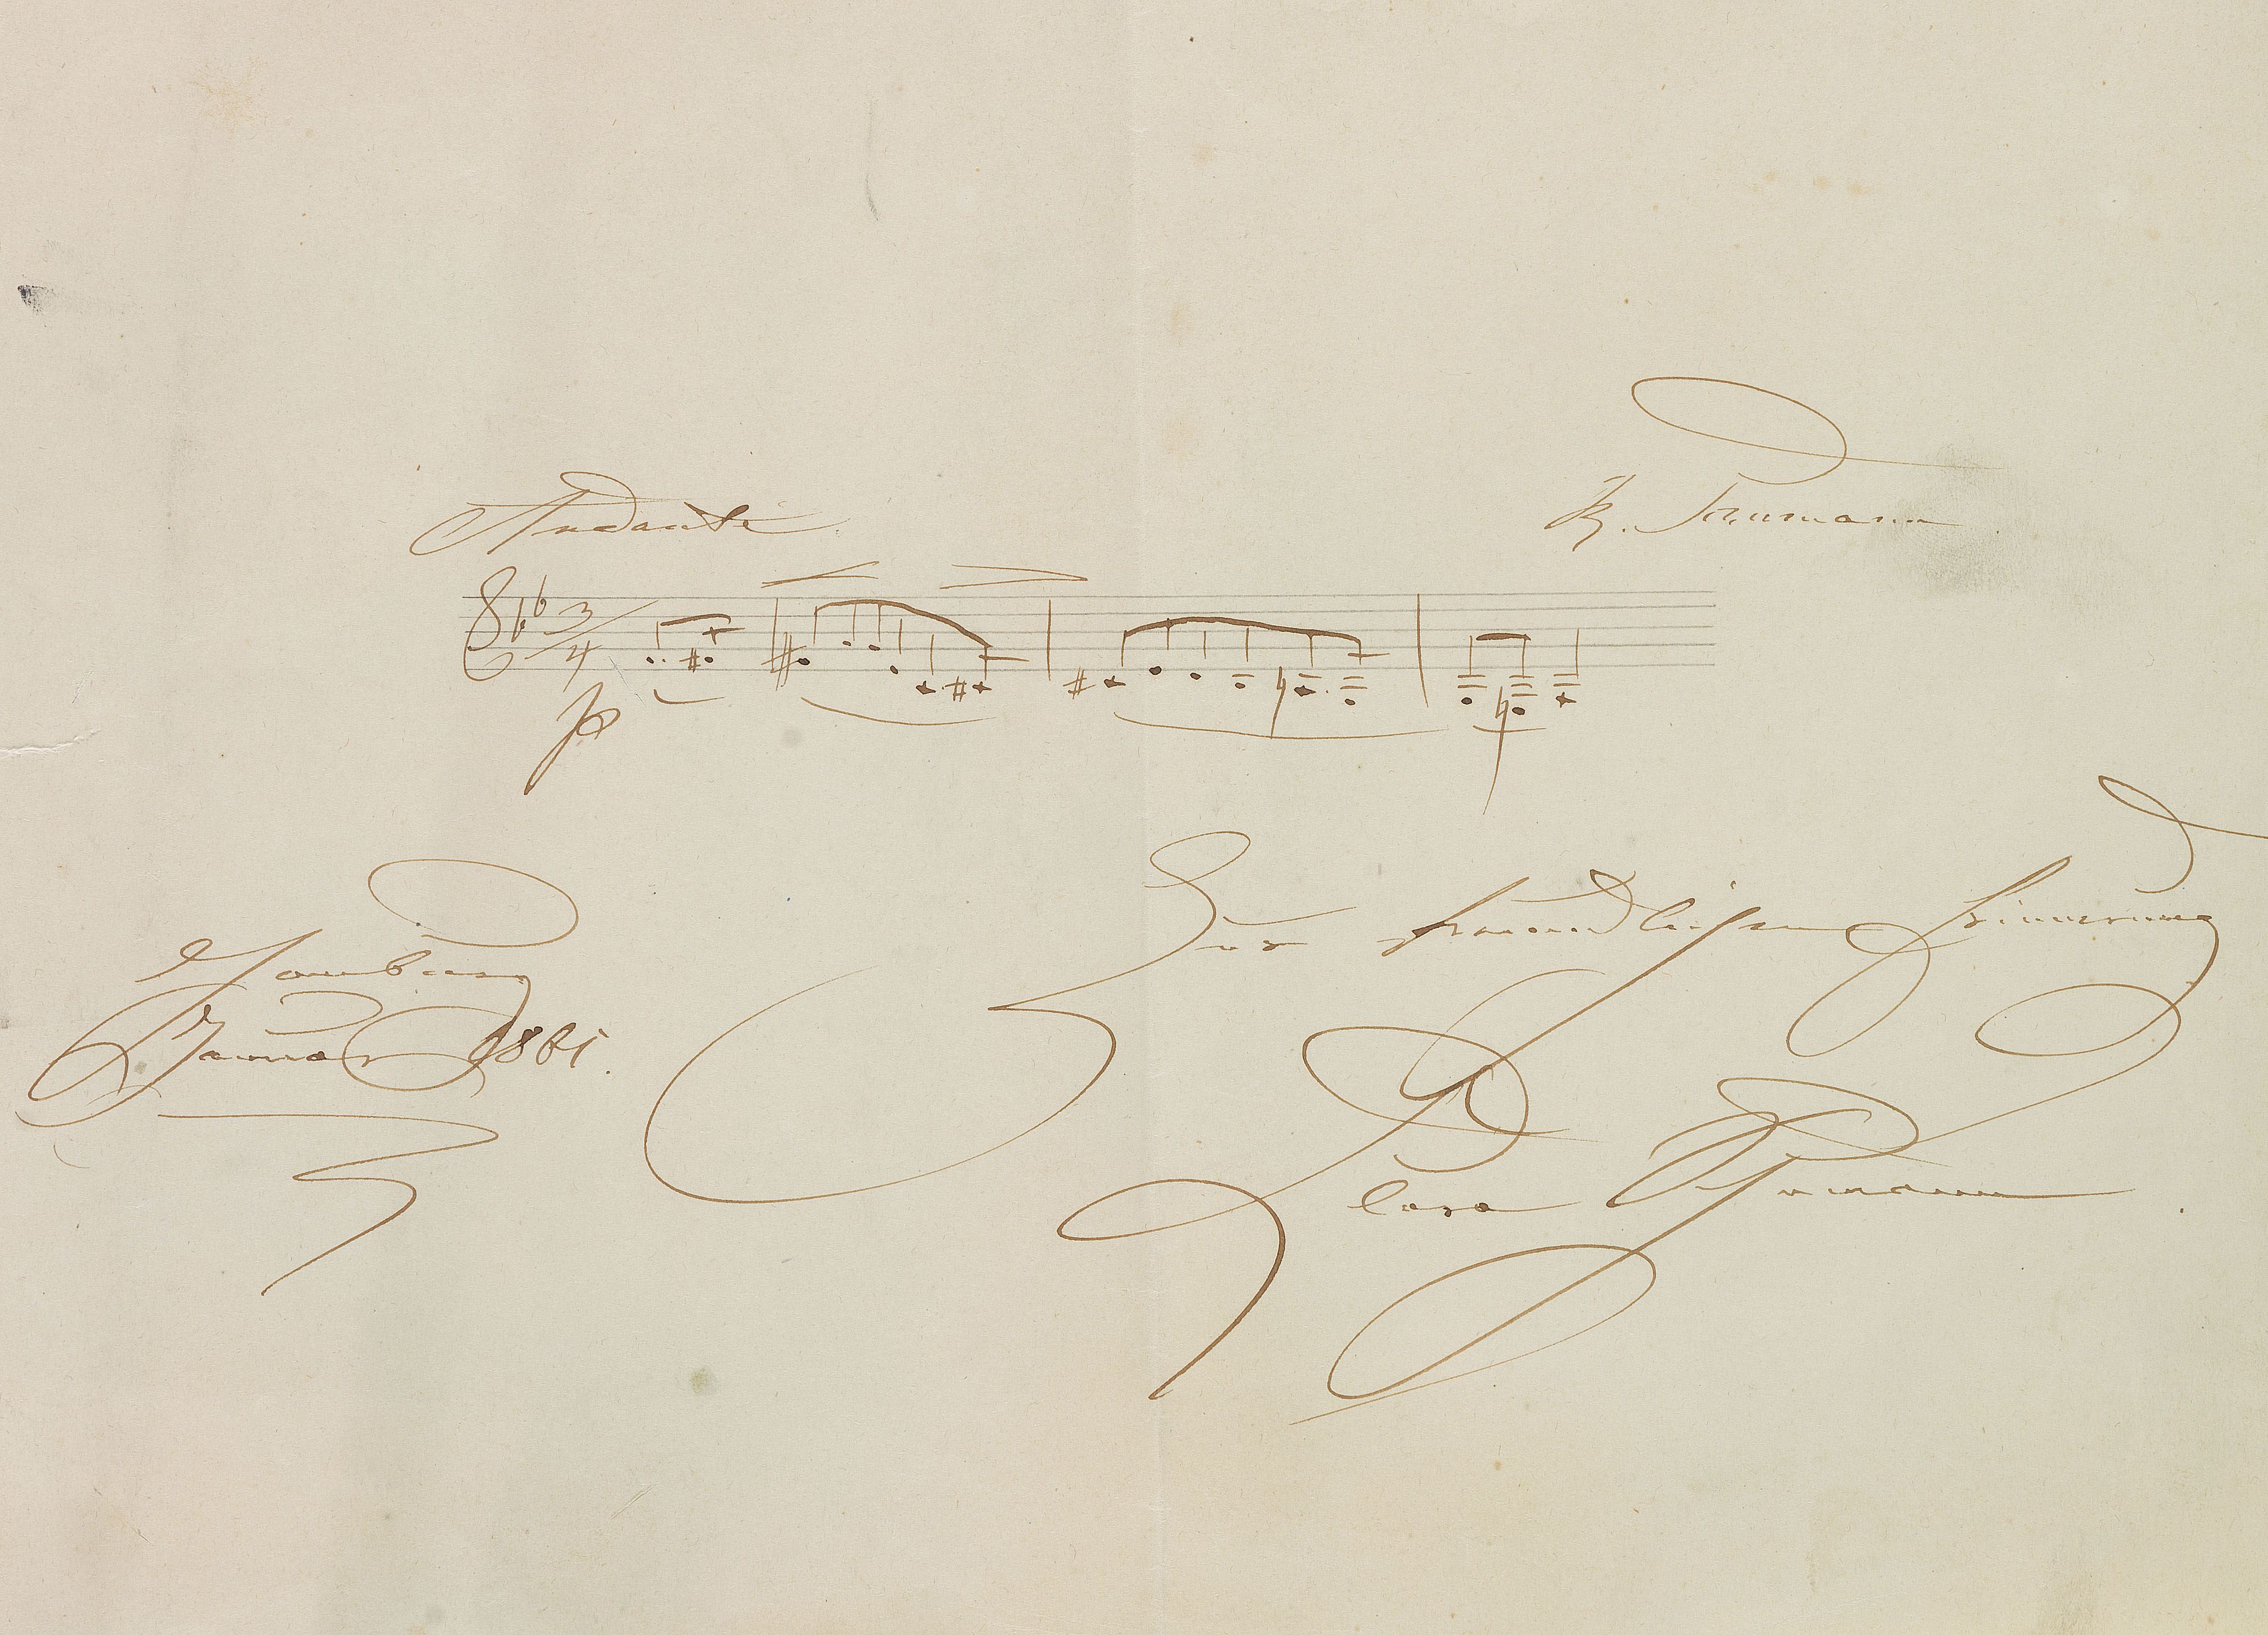 Andante
R. Schumann
3/4
p
Zur freundlichen Erinnerung
Hamburg
Januar 1861.
Clara Schumann.